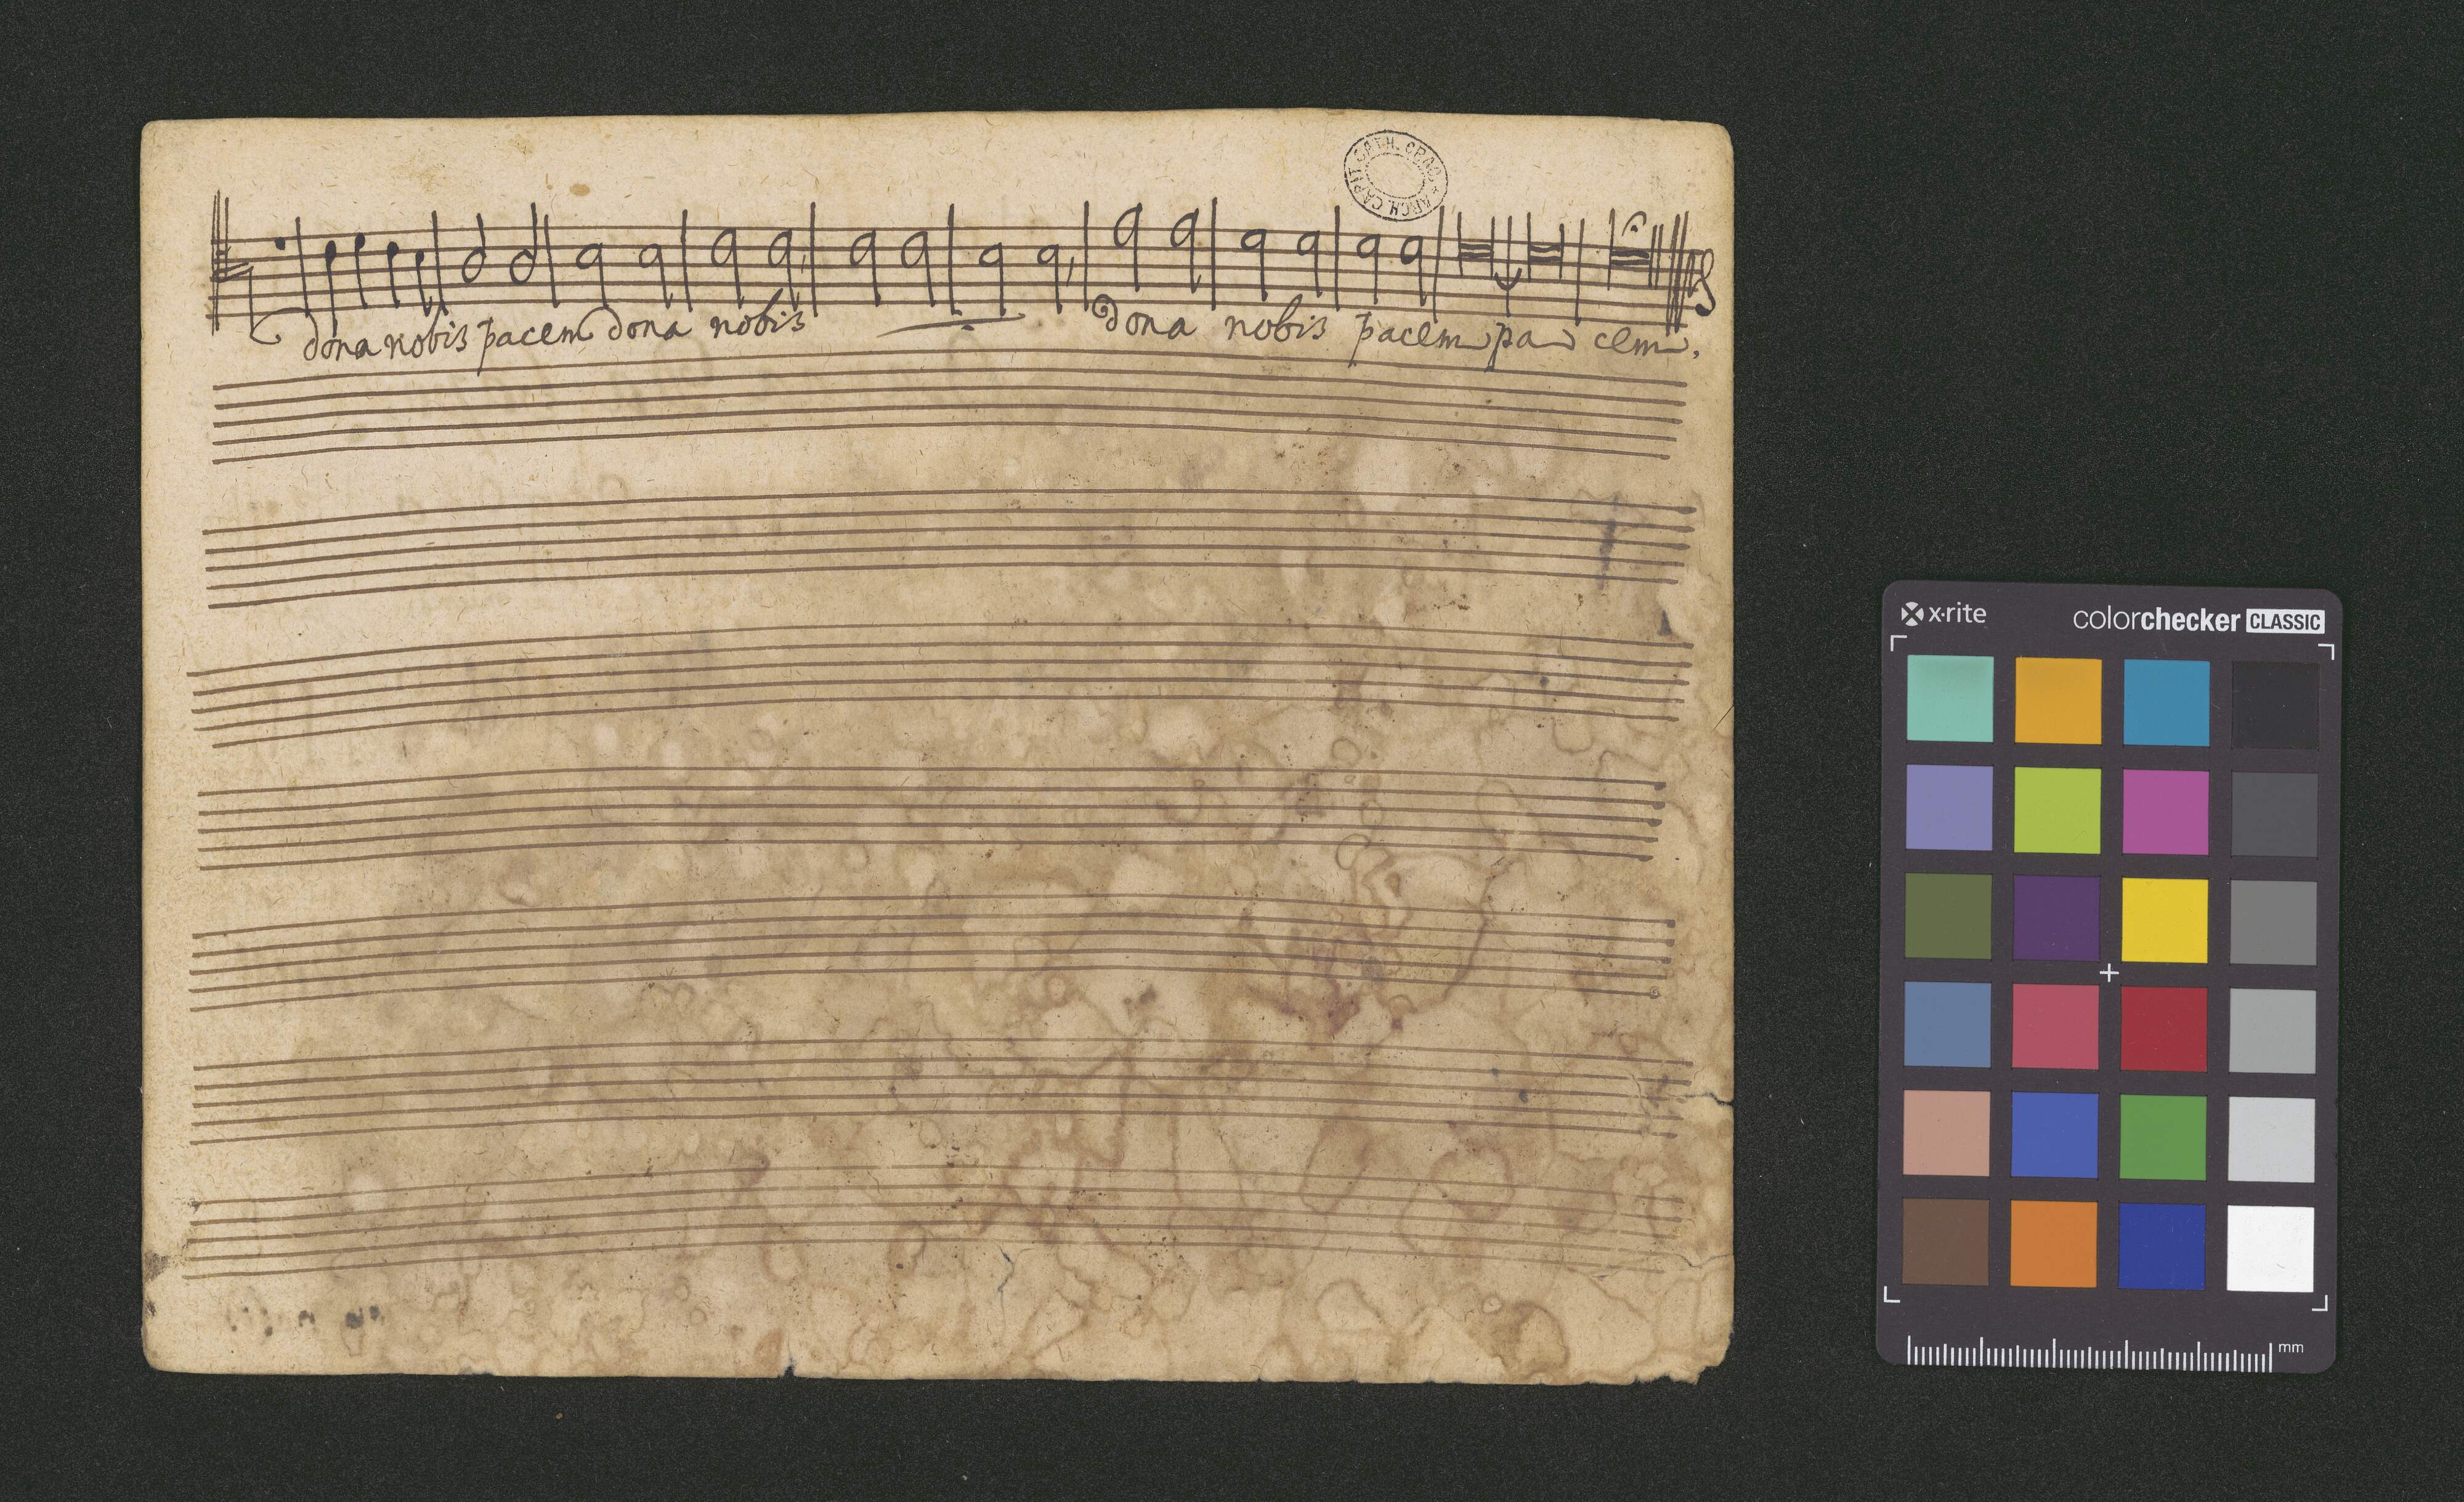 ARCH. CAPIT. CATH. CRAC. *
dona nobis pacem dona nobis dona nobis pacem pa cem.
x·rite colorchecker CLASSIC
mm